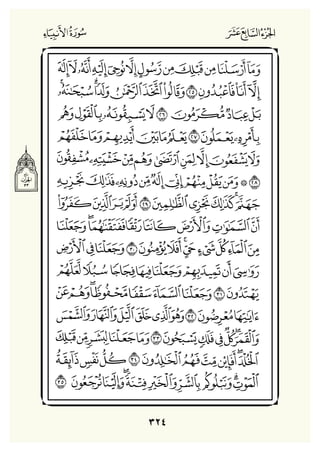 الجُزْءُ السَّابِعَ عَشَرَ
سُورَةُ الأَنبِيَاءِ
وَمَآ أَرۡسَلۡنَا مِن قَبۡلِكَ مِن رَّسُولٍ إِلَّا نُوحِيٓ إِلَيۡهِ أَنَّهُۥ لَآ إِلَٰهَ
إِلَّآ أَنَا۠ فَٱعۡبُدُونِ ٢٥ وَقَالُواْ ٱتَّخَذَ ٱلرَّحۡمَٰنُ وَلَدٗاۗ سُبۡحَٰنَهُۥۚ
بَلۡ عِبَادٞ مُّكۡرَمُونَ ٢٦ لَا يَسۡبِقُونَهُۥ بِٱلۡقَوۡلِ وَهُم
بِأَمۡرِهِۦ يَعۡمَلُونَ ٢٧ يَعۡلَمُ مَا بَيۡنَ أَيۡدِيهِمۡ وَمَا خَلۡفَهُمۡ
وَلَا يَشۡفَعُونَ إِلَّا لِمَنِ ٱرۡتَضَىٰ وَهُم مِّنۡ خَشۡيَتِهِۦ مُشۡفِقُونَ
٢٨ ۞ وَمَن يَقُلۡ مِنۡهُمۡ إِنِّيٓ إِلَٰهٞ مِّن دُونِهِۦ فَذَٰلِكَ نَجۡزِيهِ
جَهَنَّمَۚ كَذَٰلِكَ نَجۡزِي ٱلظَّٰلِمِينَ ٢٩ أَوَلَمۡ يَرَ ٱلَّذِينَ كَفَرُوٓاْ
أَنَّ ٱلسَّمَٰوَٰتِ وَٱلۡأَرۡضَ كَانَتَا رَتۡقٗا فَفَتَقۡنَٰهُمَاۖ وَجَعَلۡنَا
مِنَ ٱلۡمَآءِ كُلَّ شَيۡءٍ حَيٍّۚ أَفَلَا يُؤۡمِنُونَ ٣٠ وَجَعَلۡنَا فِي ٱلۡأَرۡضِ
رَوَٰسِيَ أَن تَمِيدَ بِهِمۡ وَجَعَلۡنَا فِيهَا فِجَاجٗا سُبُلٗا لَّعَلَّهُمۡ
يَهۡتَدُونَ ٣١ وَجَعَلۡنَا ٱلسَّمَآءَ سَقۡفٗا مَّحۡفُوظٗاۖ وَهُمۡ عَنۡ
ءَايَٰتِهَا مُعۡرِضُونَ ٣٢ وَهُوَ ٱلَّذِي خَلَقَ ٱلَّيۡلَ وَٱلنَّهَارَ وَٱلشَّمۡسَ
وَٱلۡقَمَرَۖ كُلّٞ فِي فَلَكٖ يَسۡبَحُونَ ٣٣ وَمَا جَعَلۡنَا لِبَشَرٖ مِّن قَبۡلِكَ
ٱلۡخُلۡدَۖ أَفَإِيْن مِّتَّ فَهُمُ ٱلۡخَٰلِدُونَ ٣٤ كُلُّ نَفۡسٖ ذَآئِقَةُ
ٱلۡمَوۡتِۗ وَنَبۡلُوكُم بِٱلشَّرِّ وَٱلۡخَيۡرِ فِتۡنَةٗۖ وَإِلَيۡنَا تُرۡجَعُونَ ٣٥
٣٢٤